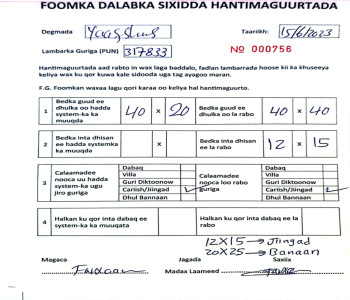 FOOMKA DALABKA SIXIDDA HANTIMAGUURTADA
Degmada Yaaqshid Taariikh: 15/6/2023
Lambarka Guriga (PUN) 317833 Nº 000756
Hantimaguurtada aad rabto in wax laga baddalo, fadlan lambarrada hoose kii ka khuseeya
keliya wax ku qor kuwa kale sidooda uga tag ayagoo maran.
F.G. Foomkan waxaa lagu qori karaa oo keliya hal hantimaguurto.
1 Bedka guud ee dhulka oo hadda system-ka ka muuqda 40 x 20 Bedka guud ee dhulka oo la rabo 40 x 40
2 Bedka inta dhisan ee hadda systemka ka muuqda x Bedka inta dhisan ee la rabo 12 x 15
3 Calaamadee nooca uu hadda system-ka ugu jiro guriga
Dabaq
Villa
Guri Diktoonow
Cariish/Jiingad ✓
Dhul Bannaan
Calaamadee nooca loo rabo guriga
Dabaq
Villa
Guri Diktoonow
Cariish/Jiingad ✓
Dhul Bannaan
4 Halkan ku qor inta dabaq ee system-ka ka muuqata Halkan ku qor inta dabaq ee la rabo
12X15 → Jiingad
20X25 → Banaan
Magaca Jagada Saxiix
Madax Laameed